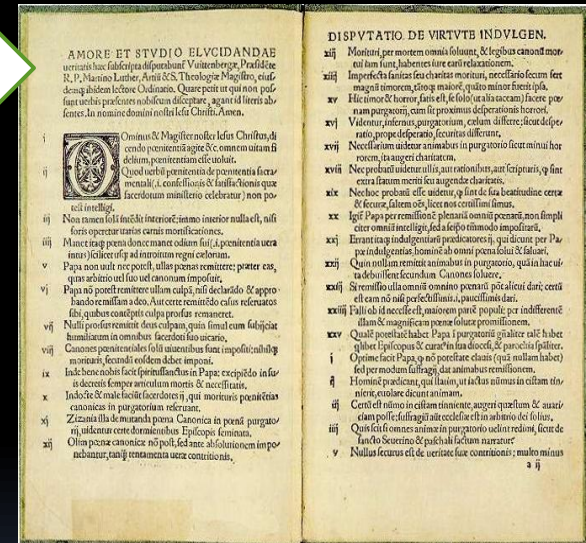 AMORE ET STVDIO ELVCIDANDAE
ueritatis hæc subscripta disputabunť Vuittenbergæ, Præsidēte
R. P. Martino Luther, Artiū & S. Theologiæ Magistro, eius-
demq̃ ibidem lectore Ordinario. Quare petit ut qui non pos-
sunt uerbis præsentes nobiscum disceptare, agant id literis ab-
sentes. In nomine domini nostri Iesu Christi. Amen.
i Ominus & Magister noster Iesus Christus, di
cendo pœnitentiā agite &c. omnem uitam fi
delium, pœnitentiam esse uoluit.
ij Quod uerbū pœnitentia de pœnitentia sacra
mentali (.i. confessionis & satisfactionis quæ
sacerdotum ministerio celebratur) non po-
test intelligi.
iij Non tamen solā intēdit interiorē: immo interior nulla est, nisi
foris operetur uarias carnis mortificationes.
iiij Manet itaq̃ pœna donec manet odium sui (.i. pœnitentia uera
intus) scilicet usq̃ ad introitum regni cælorum.
v Papa non uult nec potest, ullas pœnas remittere: præter eas,
quas arbitrio uel suo uel canonum imposuit.
vj Papa nō potest remittere ullam culpā, nisi declarādo & appro
bando remissam a deo. Aut certe remittēdo casus reseruatos
sibi, quibus contēptis culpa prorsus remaneret.
vij Nulli prorsus remittit deus culpam, quin simul eum subijciat
humiliatum in omnibus sacerdoti suo uicario.
viij Canones pœnitentiales solū uiuentibus sunt impositi: nihilq̃
morituris, secundū eosdem debet imponi.
ix Inde bene nobis facit spiritussanctus in Papa: excipiēdo in su-
is decretis semper articulum mortis & necessitatis.
x Indocte & male faciūt sacerdotes ij, qui morituris pœnitētias
canonicas in purgatorium reseruant.
xj Zizania illa de mutanda pœna Canonica in pœnā purgato-
rij, uidentur certe dormientibus Episcopis seminata.
xij Olim pœnæ canonicæ nō post, sed ante absolutionem impo
nebantur, tanq̃ tentamenta ueræ contritionis.
DISPVTATIO DE VIRTVTE INDVLGEN.
xiij Morituri, per mortem omnia soluunt, & legibus canonū mor-
tui iam sunt, habentes iure earū relaxationem.
xiiij Imperfecta sanitas seu charitas morituri, necessario secum fert
magnū timorem, tātoq̃ maiorē, quāto minor fuerit ipsa.
xv Hic timor & horror, satis est, se solo (ut alia taceam) facere pœ-
nam purgatorij, cum sit proximus desperationis horrori.
xvj Videntur, infernus, purgatorium, cælum differre: sicut despe-
ratio, prope desperatio, securitas differunt.
xvij Necessarium uidetur animabus in purgatorio sicut minui hor
rorem, ita augeri charitatem.
xviij Nec probatū uidetur ullis, aut rationibus, aut scripturis, q̃ sint
extra statum meriti seu augendæ charitatis.
xix Nec hoc probatū esse uidetur, q̃ sint de sua beatitudine certæ
& securæ, saltem oēs, licet nos certissimi simus.
xx Igiť Papa per remissionē plenariā omniū pœnarū, non simpli
citer omniū intelligit, sed a seipso tm̄modo impositarū.
xxj Errant itaq̃ indulgentiarū prædicatores ij, qui dicunt per Pa-
pæ indulgentias, hominē ab omni pœna solui & saluari.
xxij Quin nullam remittit animabus in purgatorio, quā in hac ui-
ta debuissent secundum Canones soluere.
xxiij Si remissio ulla omniū omnino pœnarū pōt alicui dari; certū
est eam nō nisi perfectissimis .i. paucissimis dari.
xxiiij Falli ob id necesse est, maiorem partē populi: per indifferentē
illam & magnificam pœnæ solutæ promissionem.
xxv Qualē potestatē habet Papa ī purgatoriū gñaliter talē habet
q̃libet Episcopus & curat9 in sua diocesi, & parochia spāliter.
j Optime facit Papa, q̃ nō potestate clauis (quā nullam habet)
sed per modum suffragij, dat animabus remissionem.
ij Hominē prædicant, qui statim, ut iactus nūmus in cistam tin-
nierit, euolare dicunt animam.
iij Certū est nūmo in cistam tinniente, augeri quæstum & auari-
ciam posse: suffragiū aūt ecclesiæ est in arbitrio dei solius.
iiij Quis scit si omnes animæ in purgatorio uelint redimi, sicut de
sancto Seuerino & paschali factum narratur?
v Nullus securus est de ueritate suæ contritionis; multo minus
a ij